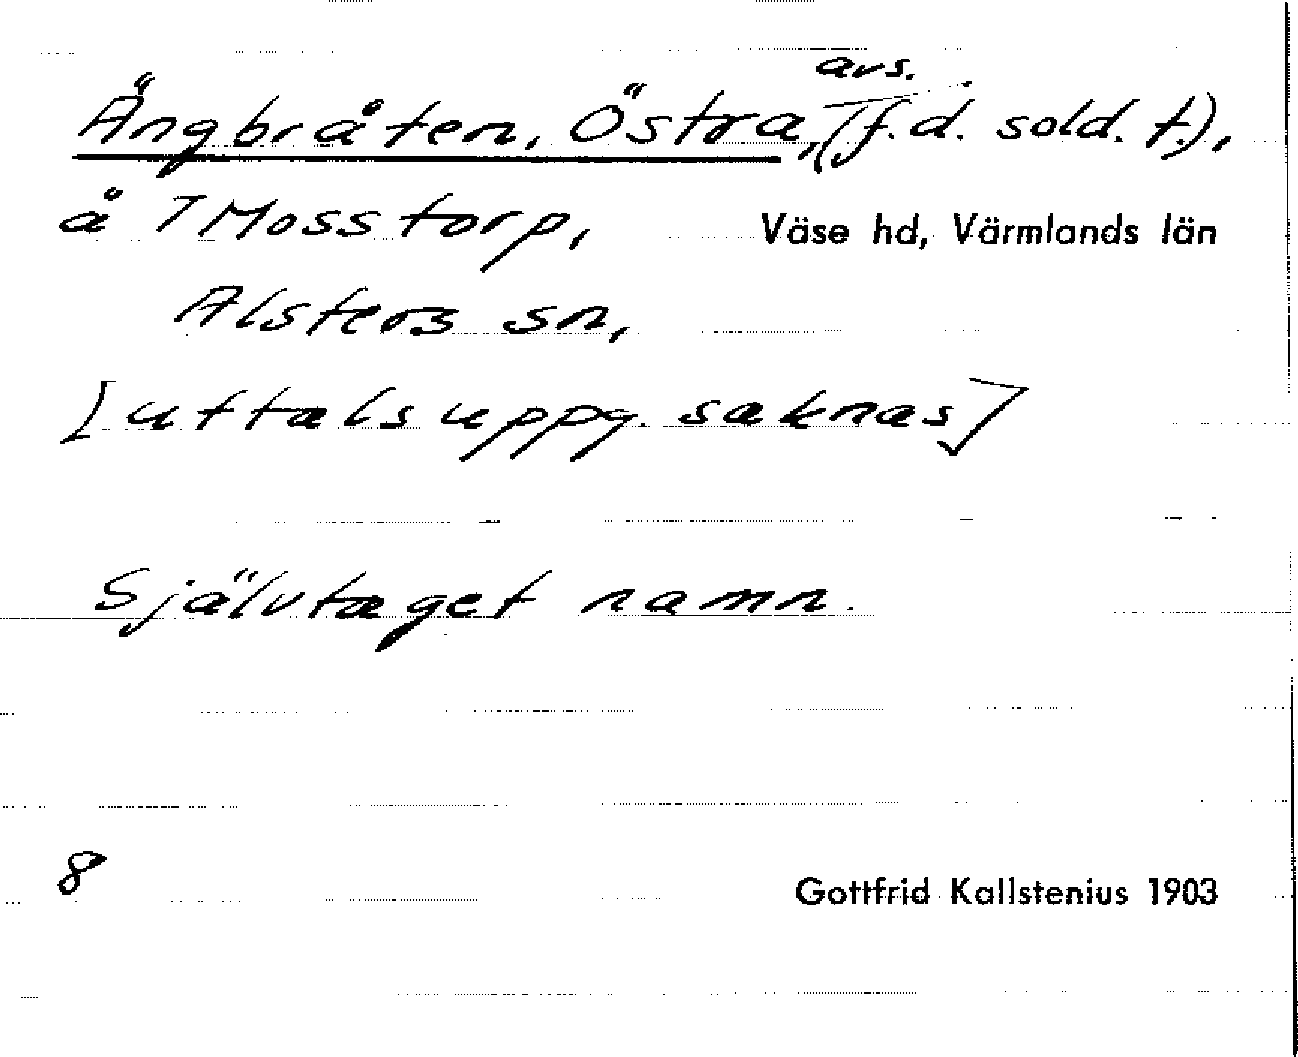 avs.
Ängbråten, Östra, (f.d. sold. t.),
å 7 Mosstorp, Väse hd, Värmlands län
Alsters sn,
[uttalsuppg. saknas]
Självtaget namn.
8
Gottfrid Kallstenius 1903